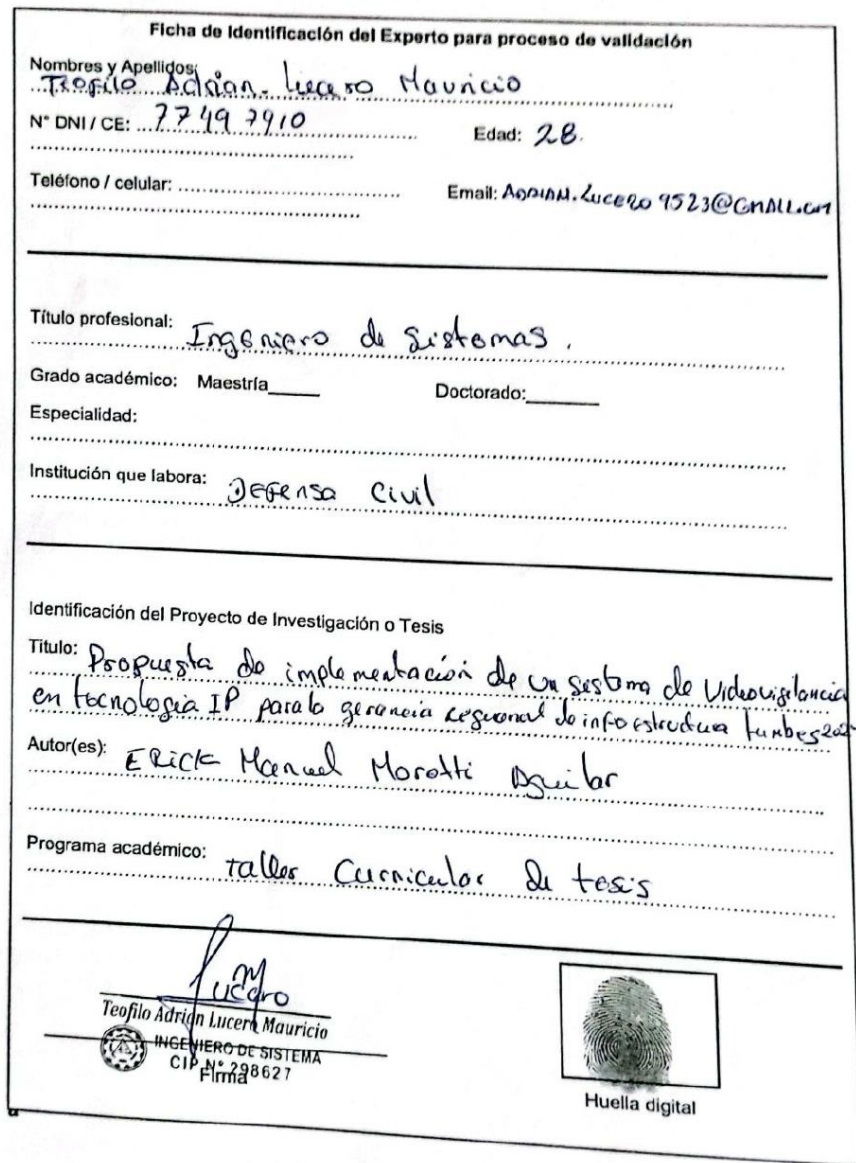 Ficha de Identificación del Experto para proceso de validación
Nombres y Apellidos:
Teofilo Adrian Lucero Mauricio
N° DNI / CE: 77497910 Edad: 28.
Teléfono / celular: Email: ADRIAN.Lucero9523@GMAIL.COM
Título profesional: Ingeniero de Sistemas.
Grado académico: Maestría Doctorado:
Especialidad:
Institución que labora: Defensa Civil
Identificación del Proyecto de Investigación o Tesis
Titulo: Propuesta de implementación de un sistema de Videovigilancia
en tecnologia IP para la gerencia regional de infraestructura tumbes
Autor(es): ERick Manuel Morotti Aguilar
Programa académico: taller Curricular de tesis
Lucero
Teofilo Adrian Lucero Mauricio
INGENIERO DE SISTEMA
CIP N° 298627
Firma
Huella digital